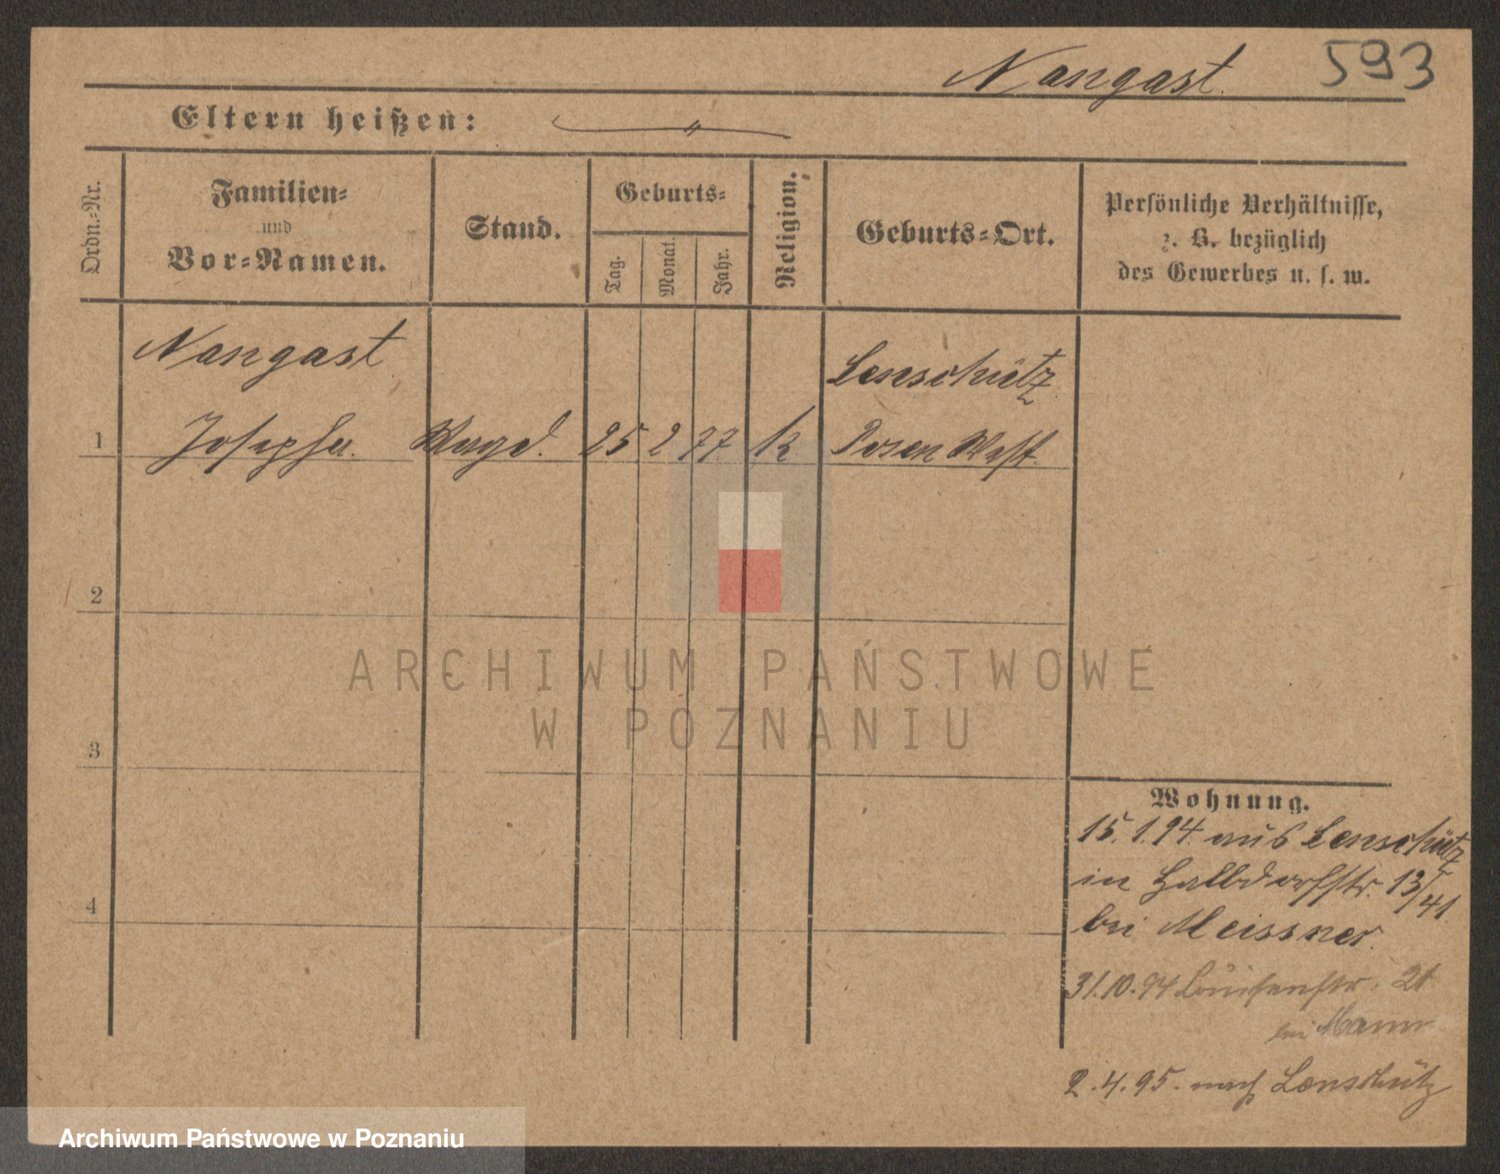 Nangast
593
Eltern heißen:
Ordn.-Nr.
Familien-
und
Vor-Namen.
Stand.
Geburts-
Tag.
Monat.
Jahr.
Religion.
Geburts-Ort.
Persönliche Verhältnisse,
z. B. bezüglich
des Gewerbes u. s. w.
Nangast
Lenschütz
1 Josepha. Magd. 25 2 77 k. Posen West.
2
ARCHIWUM PAŃSTWOWE
W POZNANIU
3
Wohnung.
15.1.94. aus Lenschütz
in Halbdorfstr. 13/41.
4
bei Meissner.
31.10.94 21
bei
2.4.95. nach Lenschütz
Archiwum Państwowe w Poznaniu